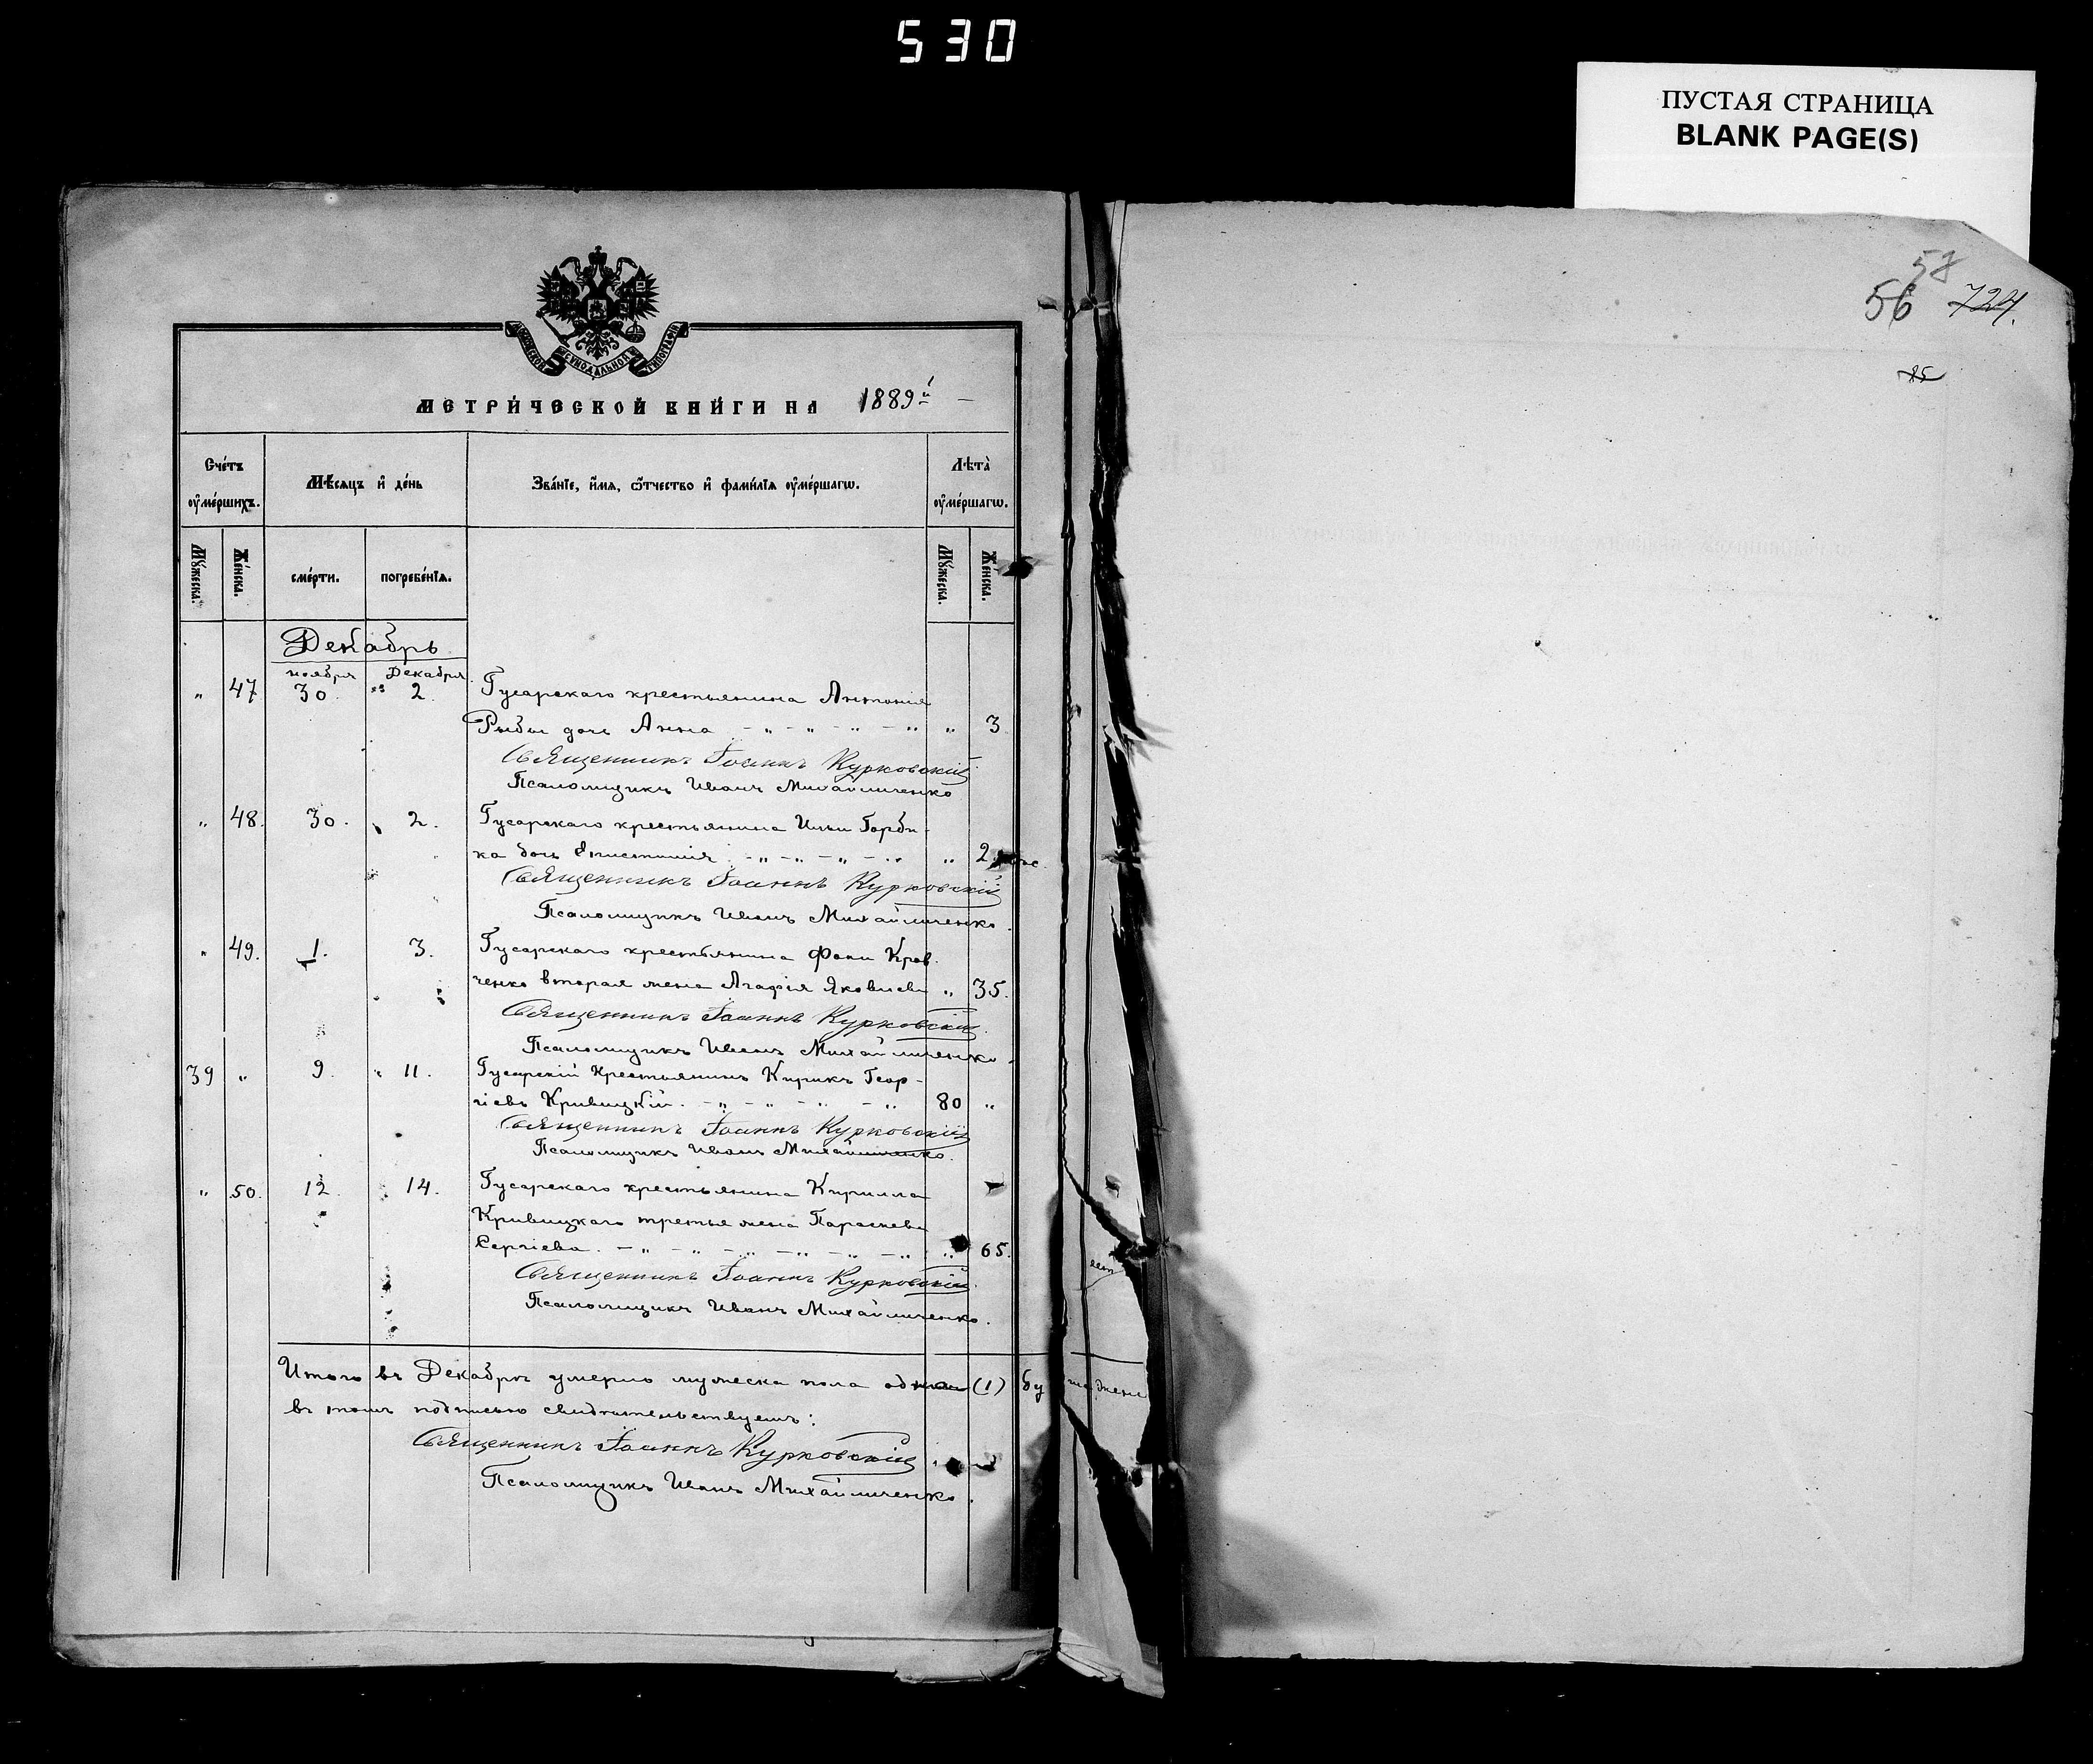 530
ПУСТАЯ СТРАНИЦА
BLANK PAGE(S)
57
56 724.
85
МОСКОВСКОЙ СѴНОДАЛЬНОЙ ТИПОГРАФІИ
МЕТРИ́ЧЕСКОЙ КНИ́ГИ НА 1889й
Сче́тъ оу҆ме́ршихъ.
Мѣ́сяцъ и҆ де́нь
Зва́нїе, и҆́мя, ѻ҆́тчество и҆ фами́лїя оу҆ме́ршагѡ.
Лѣ̑та̀ оу҆ме́ршагѡ.
Мꙋ́жеска.
Же́нска.
сме́рти.
погребе́нїя.
Мꙋ́жеска.
Же́нска.
Декабрь
ноября Декабря
" 47 30. " 2. Гусарскаго крестьянина Антонія
Рыбы дочь Анна - " - " - " - " " 3
Священникъ Іоаннъ Курковскій
Псаломщикъ Иванъ Михайличенко
" 48. 30. 2. Гусарскаго крестьянина Ильи Горби-
ка дочь Епистимія - " - " - " - " " 2
Священникъ Іоаннъ Курковскій
Псаломщикъ Иванъ Михайличенко.
" 49. 1. 3. Гусарскаго крестьянина Фоки Крав-
ченко вторая жена Агафія Яковлева " 35.
Священникъ Іоаннъ Курковскій.
Псаломщикъ Иванъ Михайличенко.
39 " 9. " 11. Гусарскій крестьянинъ Кирикъ Геор-
гіевъ Кривицкій. - " - " - " - " 80 "
Священникъ Іоаннъ Курковскій
Псаломщикъ Иванъ Михайличенко.
" 50. 12. 14. Гусарскаго крестьянина Кирилла
Кривицкаго третья жена Параскева
Сергіева. - " - " - " - " - " - " " 65.
Священникъ Іоаннъ Курковскій.
Псаломщикъ Иванъ Михайличенко.
Итого въ Декабрѣ умерло мужеска пола одинъ (1)
въ томъ подписью свидѣтельствуемъ:
Священникъ Іоаннъ Курковскій
Псаломщикъ Иванъ Михайличенко.